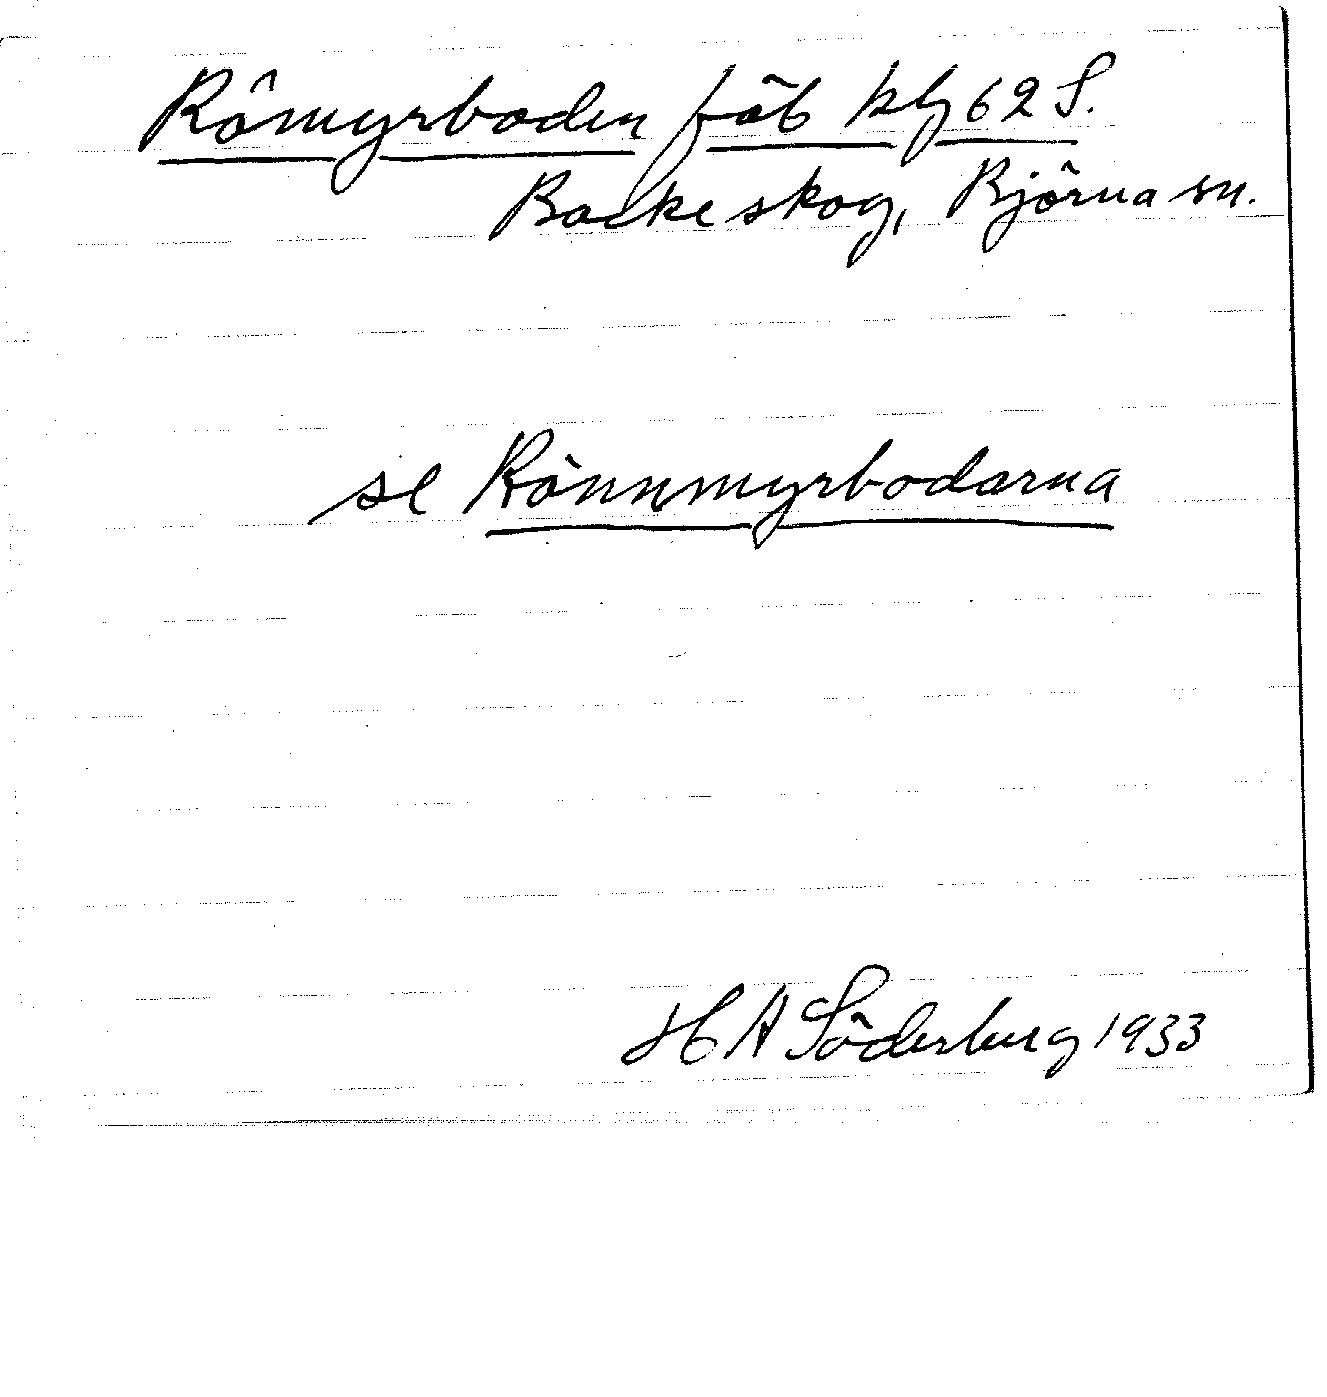 Römyrboden fäb kbl 62 S.
Backe skog, Björna sn.
se Rönnmyrbodarna
H A Söderberg 1933